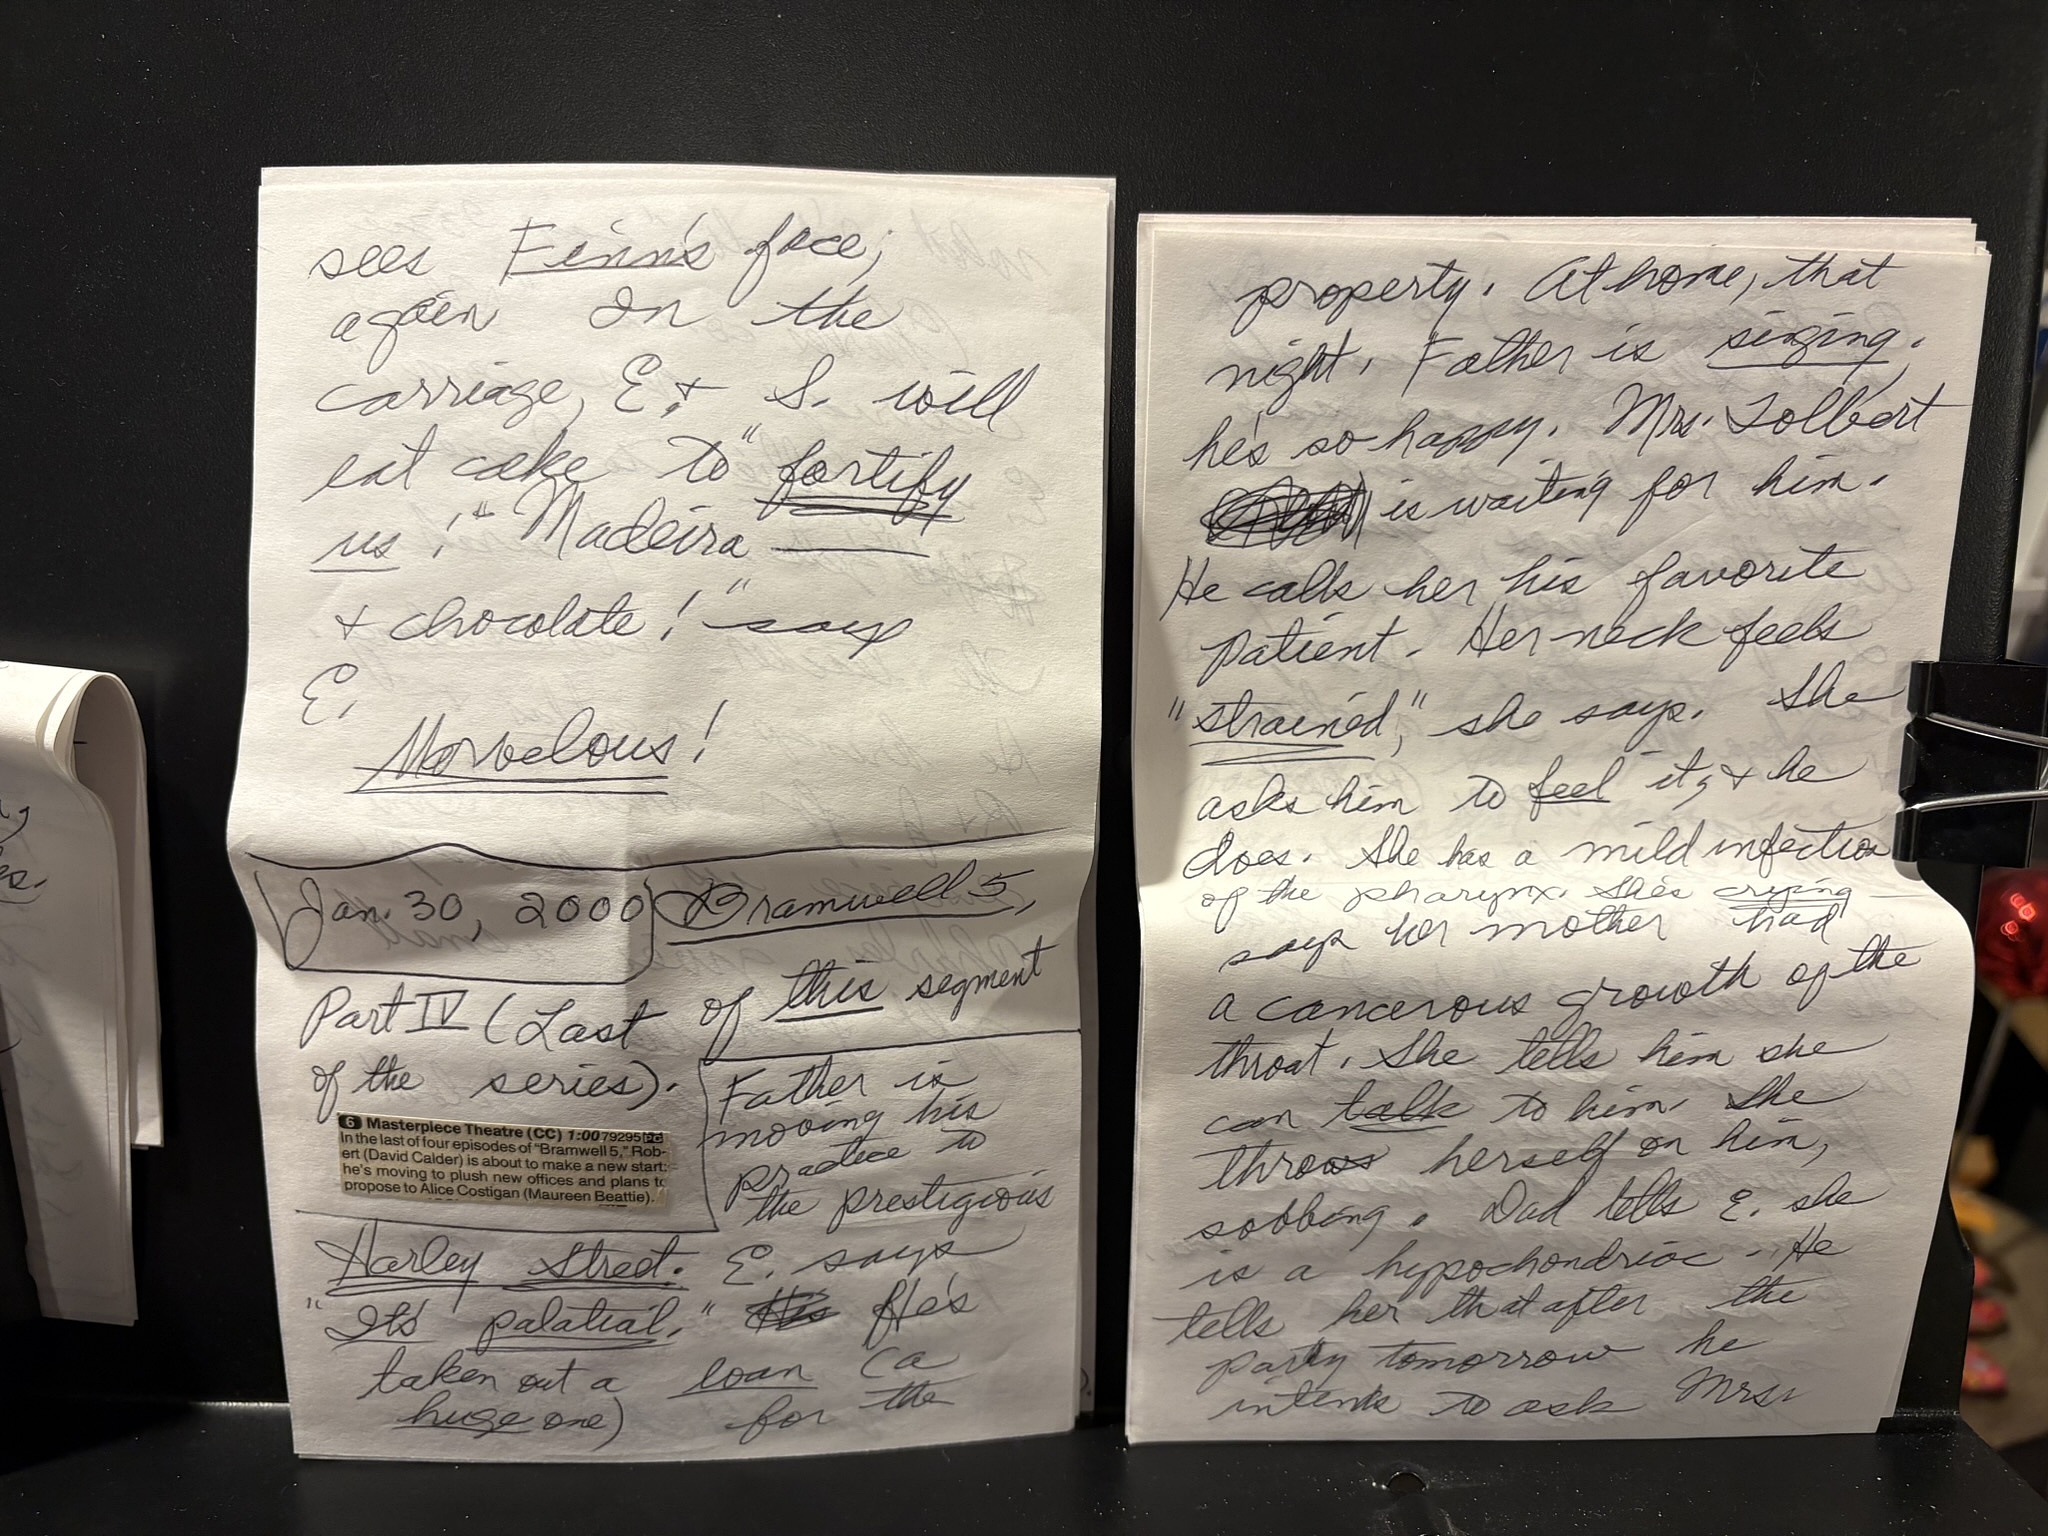 sees Finn's face,
again on the
carriage, E. & S. will
eat cake to "fortify
us!" "Madeira —
& chocolate!" says
E.
Marvelous!
Jan. 30, 2000 Bramwell 5,
Part IV (Last of this segment
of the series).
6 Masterpiece Theatre (CC) 1:00 79295 PG
In the last of four episodes of "Bramwell 5," Rob-
ert (David Calder) is about to make a new start:
he's moving to plush new offices and plans to
propose to Alice Costigan (Maureen Beattie).
Father is
moving his
practice to
the prestigious
Harley Street. E. says
"It's palatial." He's
taken out a loan (a
huge one) for the
property. At home, that
night, Father is singing,
he's so happy. Mrs. Tolbert
is waiting for him.
He calls her his favorite
patient. Her neck feels
"strained," she says. She
asks him to feel it, & he
does. She has a mild infection
of the pharynx. She's crying –
says her mother had
a cancerous growth of the
throat. She tells him she
can talk to him. She
throws herself on him,
sobbing. Dad tells E. she
is a hypochondriac. He
tells her that after the
party tomorrow he
intends to ask Mrs.